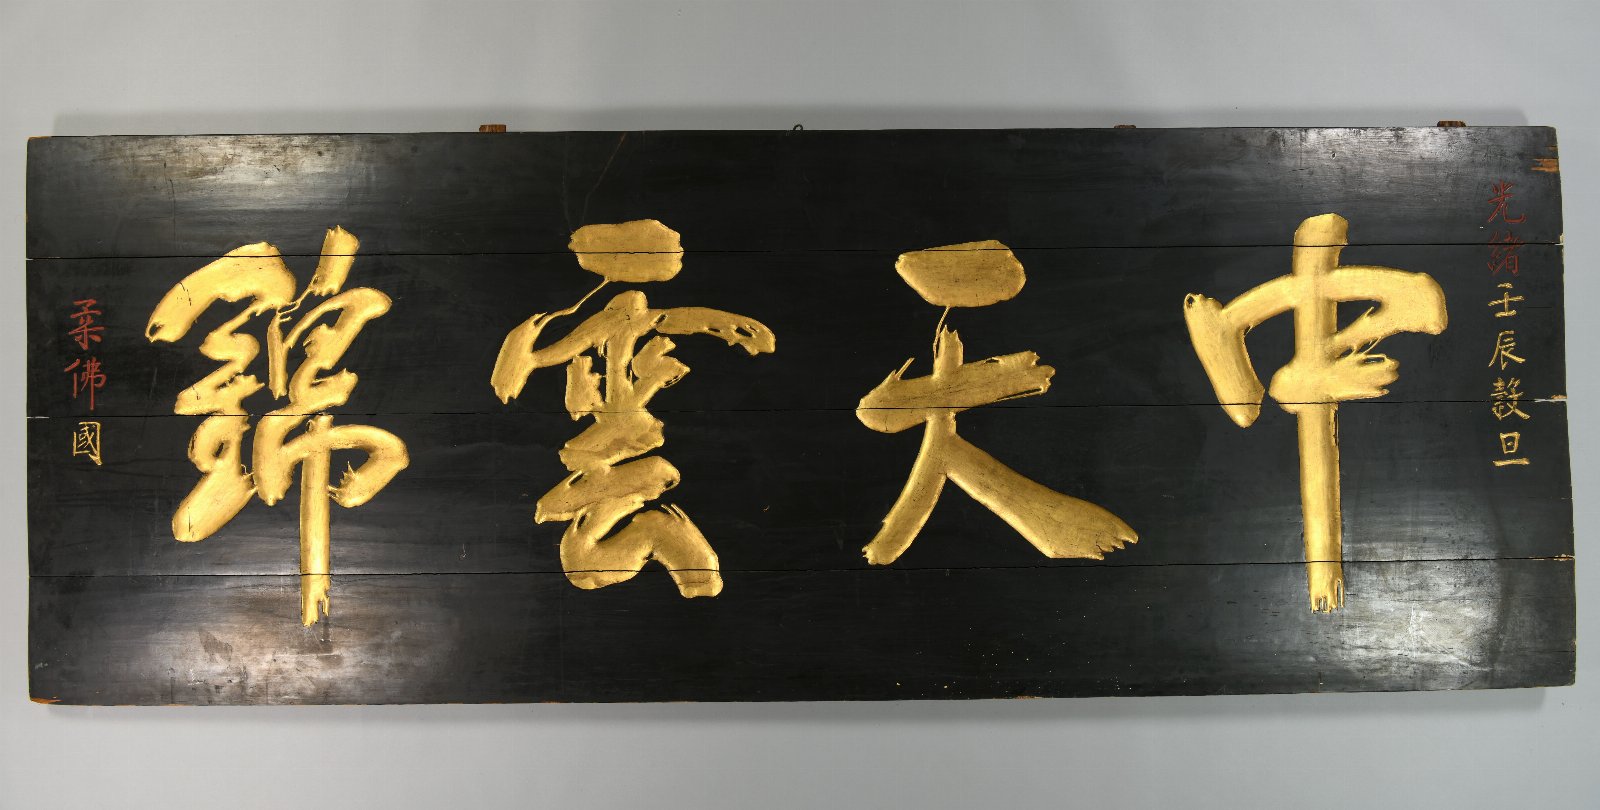 光緒壬辰穀旦
中天雲錦
柔佛國